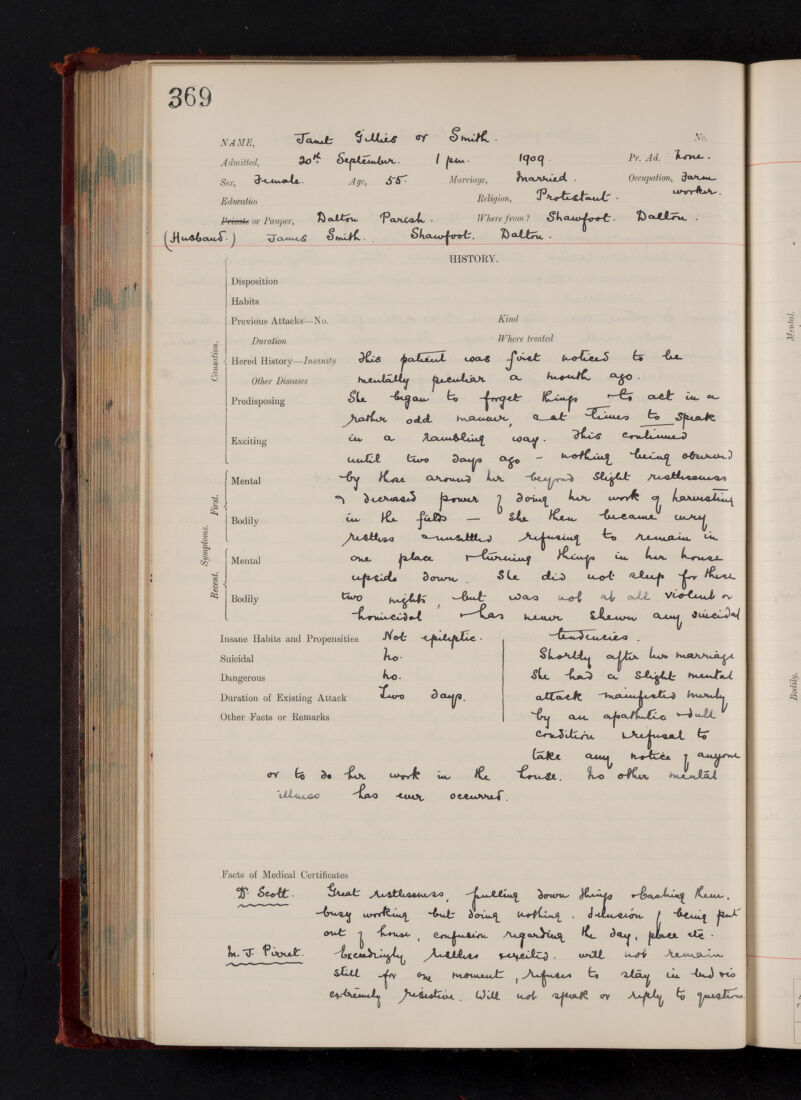 369
NAME, Janet Gillies or Smith. No.
Admitted, 20th September. 1 pm. 1909. Pr. Ad. None.
Sex, Female. Age, 55. Marriage, Married. Occupation, Farm worker.
Education Religion, Protestant.
Private or Pauper, Dalton Parish. Where from? Shawfoot. Dalton.
(Husband.) James Smith. Shawfoot. Dalton.
HISTORY.
Causation.
Disposition
Habits
Previous Attacks—No. Kind
Duration Where treated
Hered History—Insanity This patient was first noticed to be
Other Diseases mentally peculiar a month ago.
Predisposing She began to forget things & to act in a
rather odd manner, & at times to speak
Exciting in a rambling way. This continued
until two days ago – nothing being observed
Symptoms. First.
Mental by those around her beyond slight restlessness
& decreased power of doing her work of harvesting
Bodily in the fields — She then became very
restless & unsettled refusing to remain in
Recent.
Mental one place & turning things in her house
upside down. She did not sleep for these
Bodily two nights, but was not at all violent or
homicidal & has never shewn any suicidal
Insane Habits and Propensities Not epileptic. tendencies.
Suicidal No. Shortly after her marriage
Dangerous No. She had a slight mental
Duration of Existing Attack Two days. attack manifested merely
Other Facts or Remarks by an apathetic & dull
condition & refusal to
take any notice of anyone
or to do her work in the house. No other mental
illness has ever occurred.
Facts of Medical Certificates
Dr. Scott. Great restlessness, pulling down things & bashing them.
busy working but doing nothing. delusion of being put
out of house, confusion regarding the day, place etc.
M. J. Pirret. Exceedingly restless & excited. will not remain
still for one moment, refuses to stay in bed & is
extremely resistive. Will not speak or reply to questions.
Mental.
Bodily.